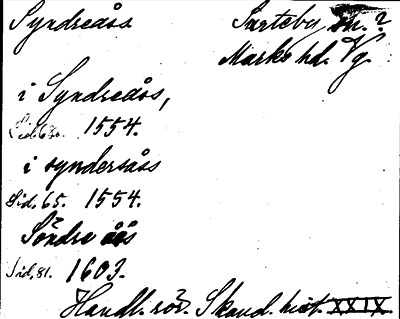 Syndreåss Surteby sn. ?
Marks hd. Vg.
i Syndreåss,
Sid. 63. 1554.
i syndersåss
Sid. 65. 1554.
Söndre åss
Sid. 81. 1603.
Handl. rör. Skand. hist. XXIX